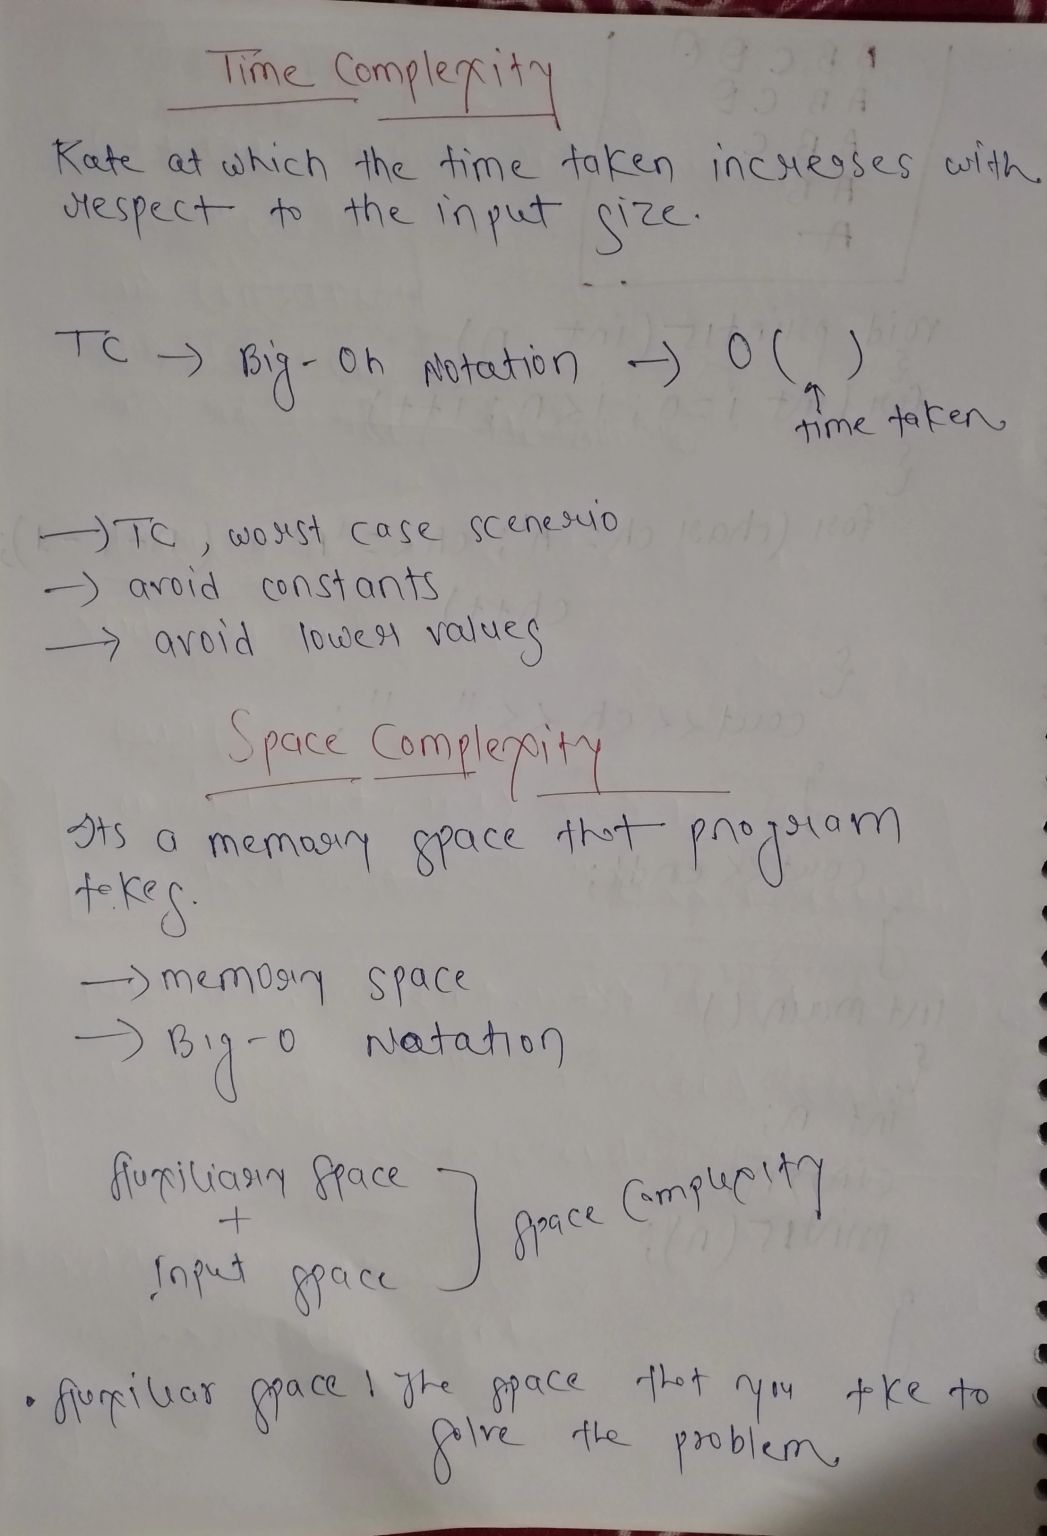 Time Complexity
Rate at which the time taken increases with
respect to the input size.
TC → Big-Oh Notation → O( )
↑
time taken
→ TC, worst case scenerio
→ avoid constants
→ avoid lower values
Space Complexity
Its a memory space that program
takes.
→ memory space
→ Big-O Notation
Auxiliary Space
+
Input space
} Space Complexity
• Auxiliar space : The space that you take to
solve the problem